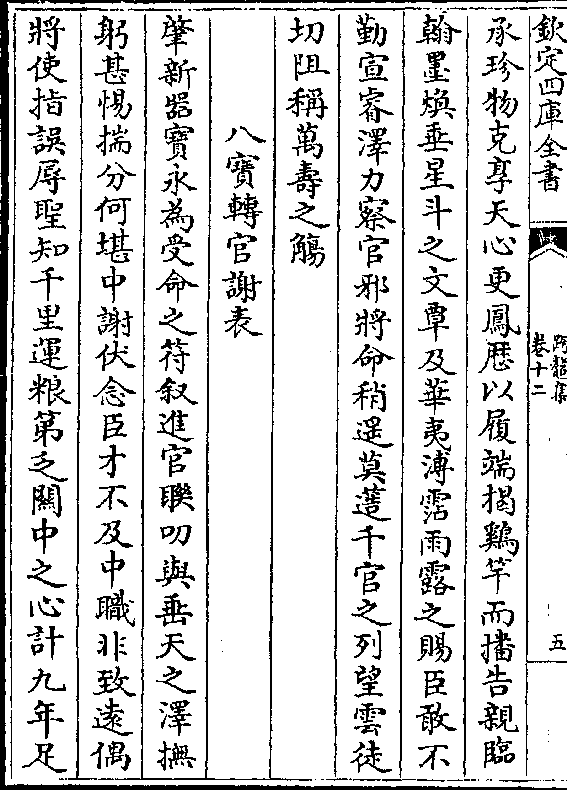 欽定四庫全書
卷十二
五
承珍物克享天心更鳳厯以履端掲鷄竿而播告親臨
翰墨煥垂星斗之文覃及華夷溥霑雨露之賜臣敢不
勤宣睿澤力察官邪將命稍遥莫簉千官之列望雲徒
切阻稱萬壽之觴
八寶轉官謝表
肇新器寶永為受命之符叙進官聨叨與垂天之澤撫
躬甚惕揣分何堪中謝伏念臣才不及中職非致遠偶
將使指誤辱聖知千里運粮第乏關中之心計九年足